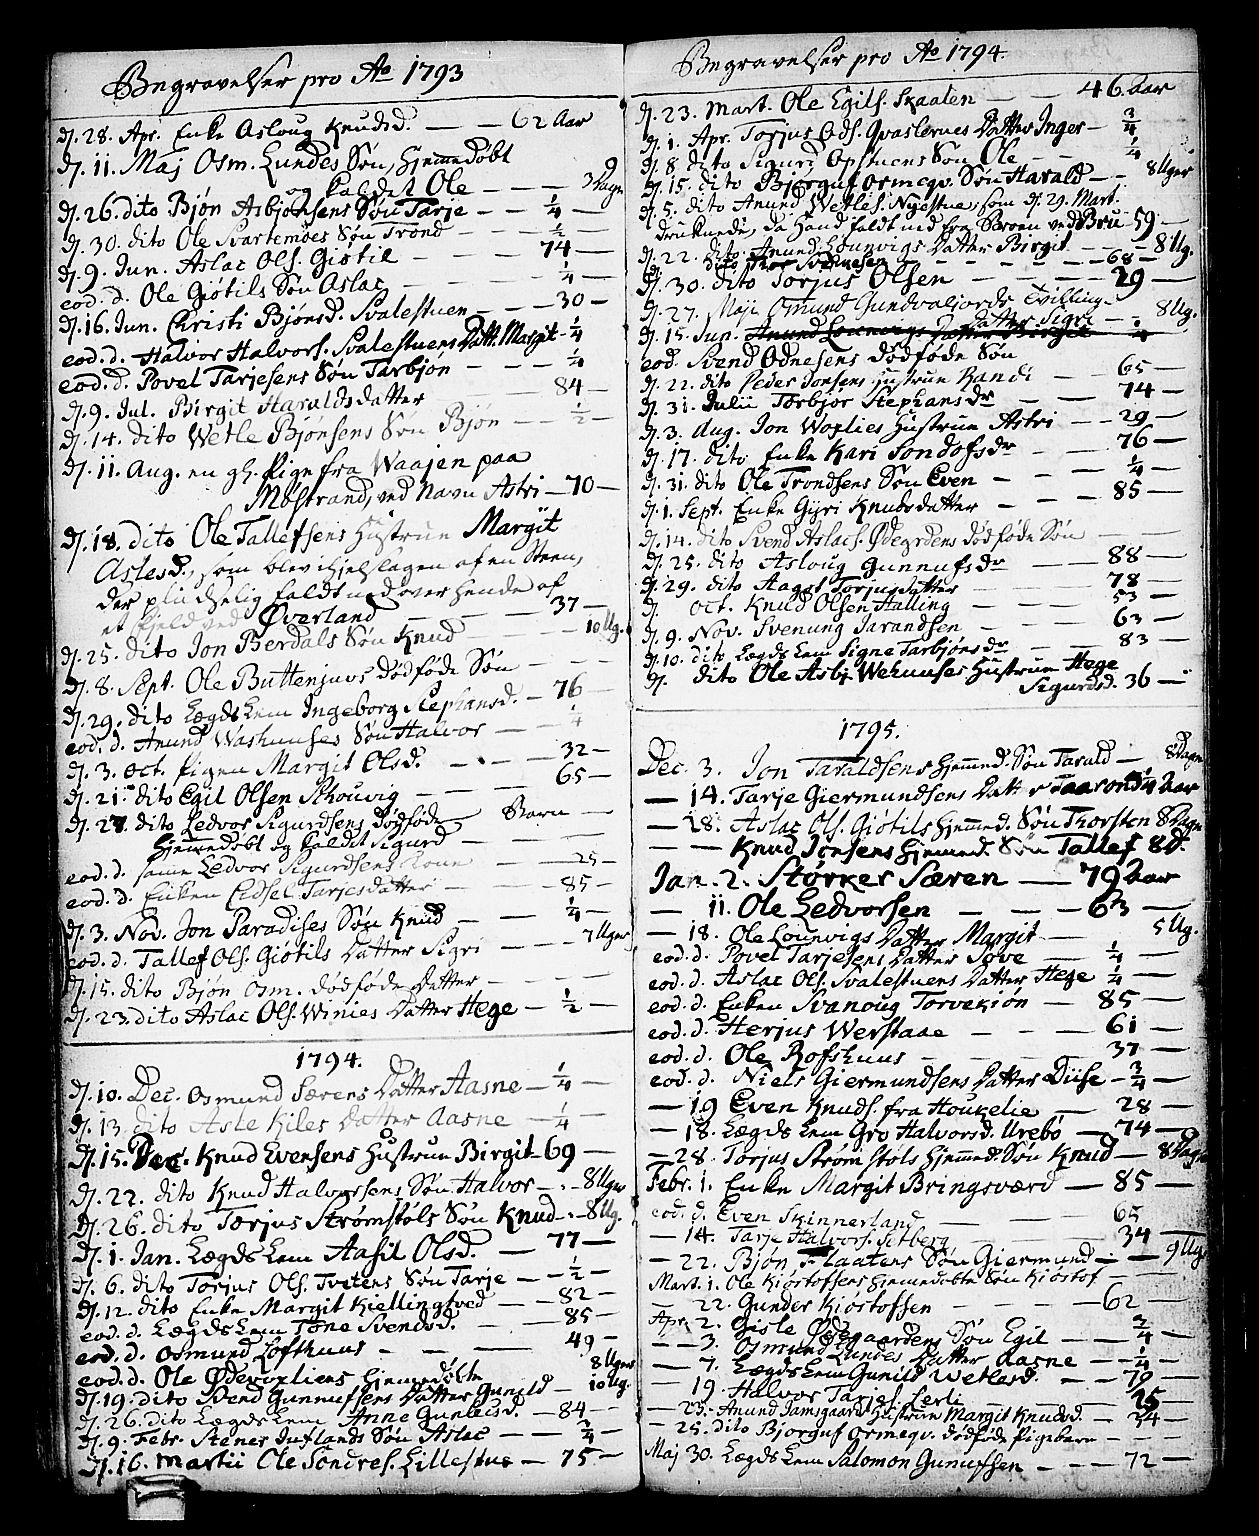 Begravelser pro Ao 1793
D. 28. Apr. Enke Asloug Knudsd. — — 62 Aar
D. 11. Maj Osm. Lundes Søn, Hjemmedøbt
og kaldet Ole — — — 9 Dagr
D. 26. dito Bjøn Asbjønsens Søn Tarje — — 1/4 —
D. 30. dito Ole Svartemoes Søn Trond — — 1/2 —
D. 9. Jun. Aslac Ols. Giøtil — — 74 —
eod. d. Ole Giøtils Søn Aslac — — 1/4 —
D. 16. Jun. Christi Bjønsd. Svalestuen — — 30 —
eod. d. Halvor Halvors. Svalestuens Datt. Margit — 1/4
eod. d. Povel Tarjesens Søn Tarbjøn — — — 1/4
D. 9. Jul. Birgit Haraldsdatter — 84 —
D. 14. dito Wetle Bjønsens Søn Bjøn — — 1/2 —
D. 11. Aug. en gl. Pige fra Waajen paa
Møstrand, ved Navn Astri — 70 —
D. 18. dito Ole Tallefsens Hustrue Margit
Aslesd., som blev ihjelslagen af en Steen,
der pludselig faldt ned over hende af
et Fjeld ved Øverland — — — 37 —
D. 25. dito Jon Berdals Søn Knud — — 10 Ug.
D. 8. Sept. Ole Buttenjuvs dødføde Søn — — —
D. 29. dito Lægds Lem Ingeborg Stephansd. — 76 —
eod. d. Anund Washuuses Søn Halvor — 1/4
D. 3. Oct. Pigen Margit Olsd. — — 32 —
D. 21. dito Egil Olsen Skouvig — — — 65 —
D. 27. dito Ledvor Sigurdsens dødføde Barn — —
Hjemmedøbt og kaldet Sigurd — — —
eod. d. samme Ledvor Sigurdsens Kone — 25 —
eod. d. Enken Edsel Tarjesdatter — 85 —
D. 3. Nov. Jon Paradises Søn Knud — — 1/4 —
eod. d. Tallef Ols. Giøtils Datter Sigri — — 7 Uger
D. 15. dito Bjøn Osm. dødføde Datter — — —
D. 23. dito Aslac Ols. Winies Datter Hege — 1/2 —
1794.
D. 10. Dec. Osmund Særens Datter Aasne — 1/4 —
D. 13. dito Asle Kiles Datter Aasne — 1/4
D. 15. Dec. Knud Evensens Hustrue Birgit — 69 —
D. 22. dito Knud Halvorsens Søn Halvor — 8 Uger
D. 26. dito Tarjus Strømstøls Søn Knud — 8 Ug.
D. 1. Jan. Lægds Lem Aasil Olsd. — 77 —
D. 6. dito Torjus Ols. Tvitens Søn Tarje — — 1/2 —
D. 12. dito Enke Margit Kiellingtved — — 82 —
eod. d. Lægds Lem Tone Svendsd. — — 85 —
eod. d. Osmund Lofthuus — — — 49 —
eod. d. Ole Ødevopliens Hjemedøbte — 8 Uger
D. 19. dito Svend Gunnufsens Datter Gunild — 10 Ug.
D. 26. dito Lægds Lem Anne Gunleisd. — 84 —
D. 9. Febr. Stener Jutlands Søn Aslac — — 3/4 —
D. 16. Martii Ole Sondres. Lillestue — 75 —
Begravelser pro Ao 1794.
D. 23. Mart. Ole Egils. Skaaten — — 46 Aar
D. 1. Apr. Torjus Ods. Qvaslernes Datter Inger — 3/4
D. 8 dito Sigurd Opstuens Søn Ole — — 1/4
D. 15. dito Bjørguf Ormeqv. Søn Harald — — 8 Uger
D. 5. dito Anund Wetles. Nyestue, som d. 29. Mart.
druknede, da Hand faldt ned fra Broen ved Brü — 59 —
D. 22. dito Anund Lounvigs Datter Birgit — — 8 Ug.
dito Thor Svennesen — — — 68 —
D. 30. dito Torjus Olsen — — 29 —
D. 27. Maji Osmund Gundvaljords Tvilling-
Datter Sigri — 8 Ug.
D. 15. Jun. Anund Lounvigs Datter Birgit
eod. Svend Odnesens dødføde Søn
D. 22. dito Peder Jonsens Hustrue Randi — — 65 —
D. 31. Julii Torbjør Stephansdr — — 74 —
D. 3. Aug. Jon Woplies Hustrue Astri — — 29 —
D. 17. dito Enke Kari Sondofsdr — — 76 —
D. 31. dito Ole Trondsens Søn Even — — 1/4 —
D. 1. Sept. Enke Gyri Knudsdatter — — 85 —
D. 14. dito Svend Aslacs. Ødegrdens dødføde Søn — —
D. 25. dito Asloug Gunnufsdr — — 88 —
D. 29. dito Aagot Torjusdatter — — 78 —
D. Oct. Knud Olsen Halling — — 53 —
D. 9. Nov. Svenung Jarandsen — — 63 —
D. 10. dito Lægds Lem Signe Tarbjønsdr — — 83 —
D. dito Ole Asbj. Wehuuses Hustrue Hege
Sigurdsd. 36 —
1795.
Dec. 3. Jon Taraldsens Hjemmed. Søn Tarald — 8 Dagr
— 14. Tarje Giermundsens Datter Taarond 1/4 Aar
— 28. Aslac Ols. Giøtils Hjemmed. Søn Thorsten 8 Dagr
— — Knud Jonsens Hjemmed. Søn Tallef 8 D.
Jan. 2. Størker Særen — 79 Aar
— 11. Ole Ledvorsen — — — 63 —
— 18. Ole Lounvigs Datter Margit — — 5 Ug.
eod. d. Povel Tarjesens Datter Tøve — 1/4 —
eod. d. Aslac Ols. Svalestuens Datter Hege 1/4 —
eod. d. Enken Svanoug Torvekiøn — 85 —
eod. d. Herjus Werstaae — — 61 —
eod. d. Ole Rofshuus — — — 37 —
eod. d. Niels Giermundsens Datter Diise — 3/4 —
— 19 Even Knuds. fra Houkelie — 28 —
— 18. Lægds Lem Gro Halvorsd. Urebø — 74 —
— 28. Torjus Strømstøls Hjemmed. Søn Knud — 8 Dage
Febr. 1. Enke Margit Bringsværd — 85 —
eod. d. Even Skinnerland — — 65
— 14. Tarje Halvors. Setberg — — 34 —
— 22. Bjøn Flaatens Søn Giermund — — 9 Ug.
Mart. 1. Ole Kiøstofsens Hjemmedøbte Søn Kiøstof — —
— 22. Gunder Kiøstofsen — — — 62 —
Apr. 2. Gisle Ødegaardens Søn Egil — — 3/4
— 3. Osmund Lundes Datter Aasne — — 1/4 —
— 7. Lægds Lem Gunild Wetlesd. — — 79 —
— 19. Halvor Tarjes. Ferli — — 25 —
— 23. Anund Jamsgaards Hustrue Margit Knudsd. — 34 —
— 25. dito Bjorguf Ormeqv. dødføde Pigebarn — — —
Maj 30. Lægds Lem Salomon Gunufsen — — 72 —